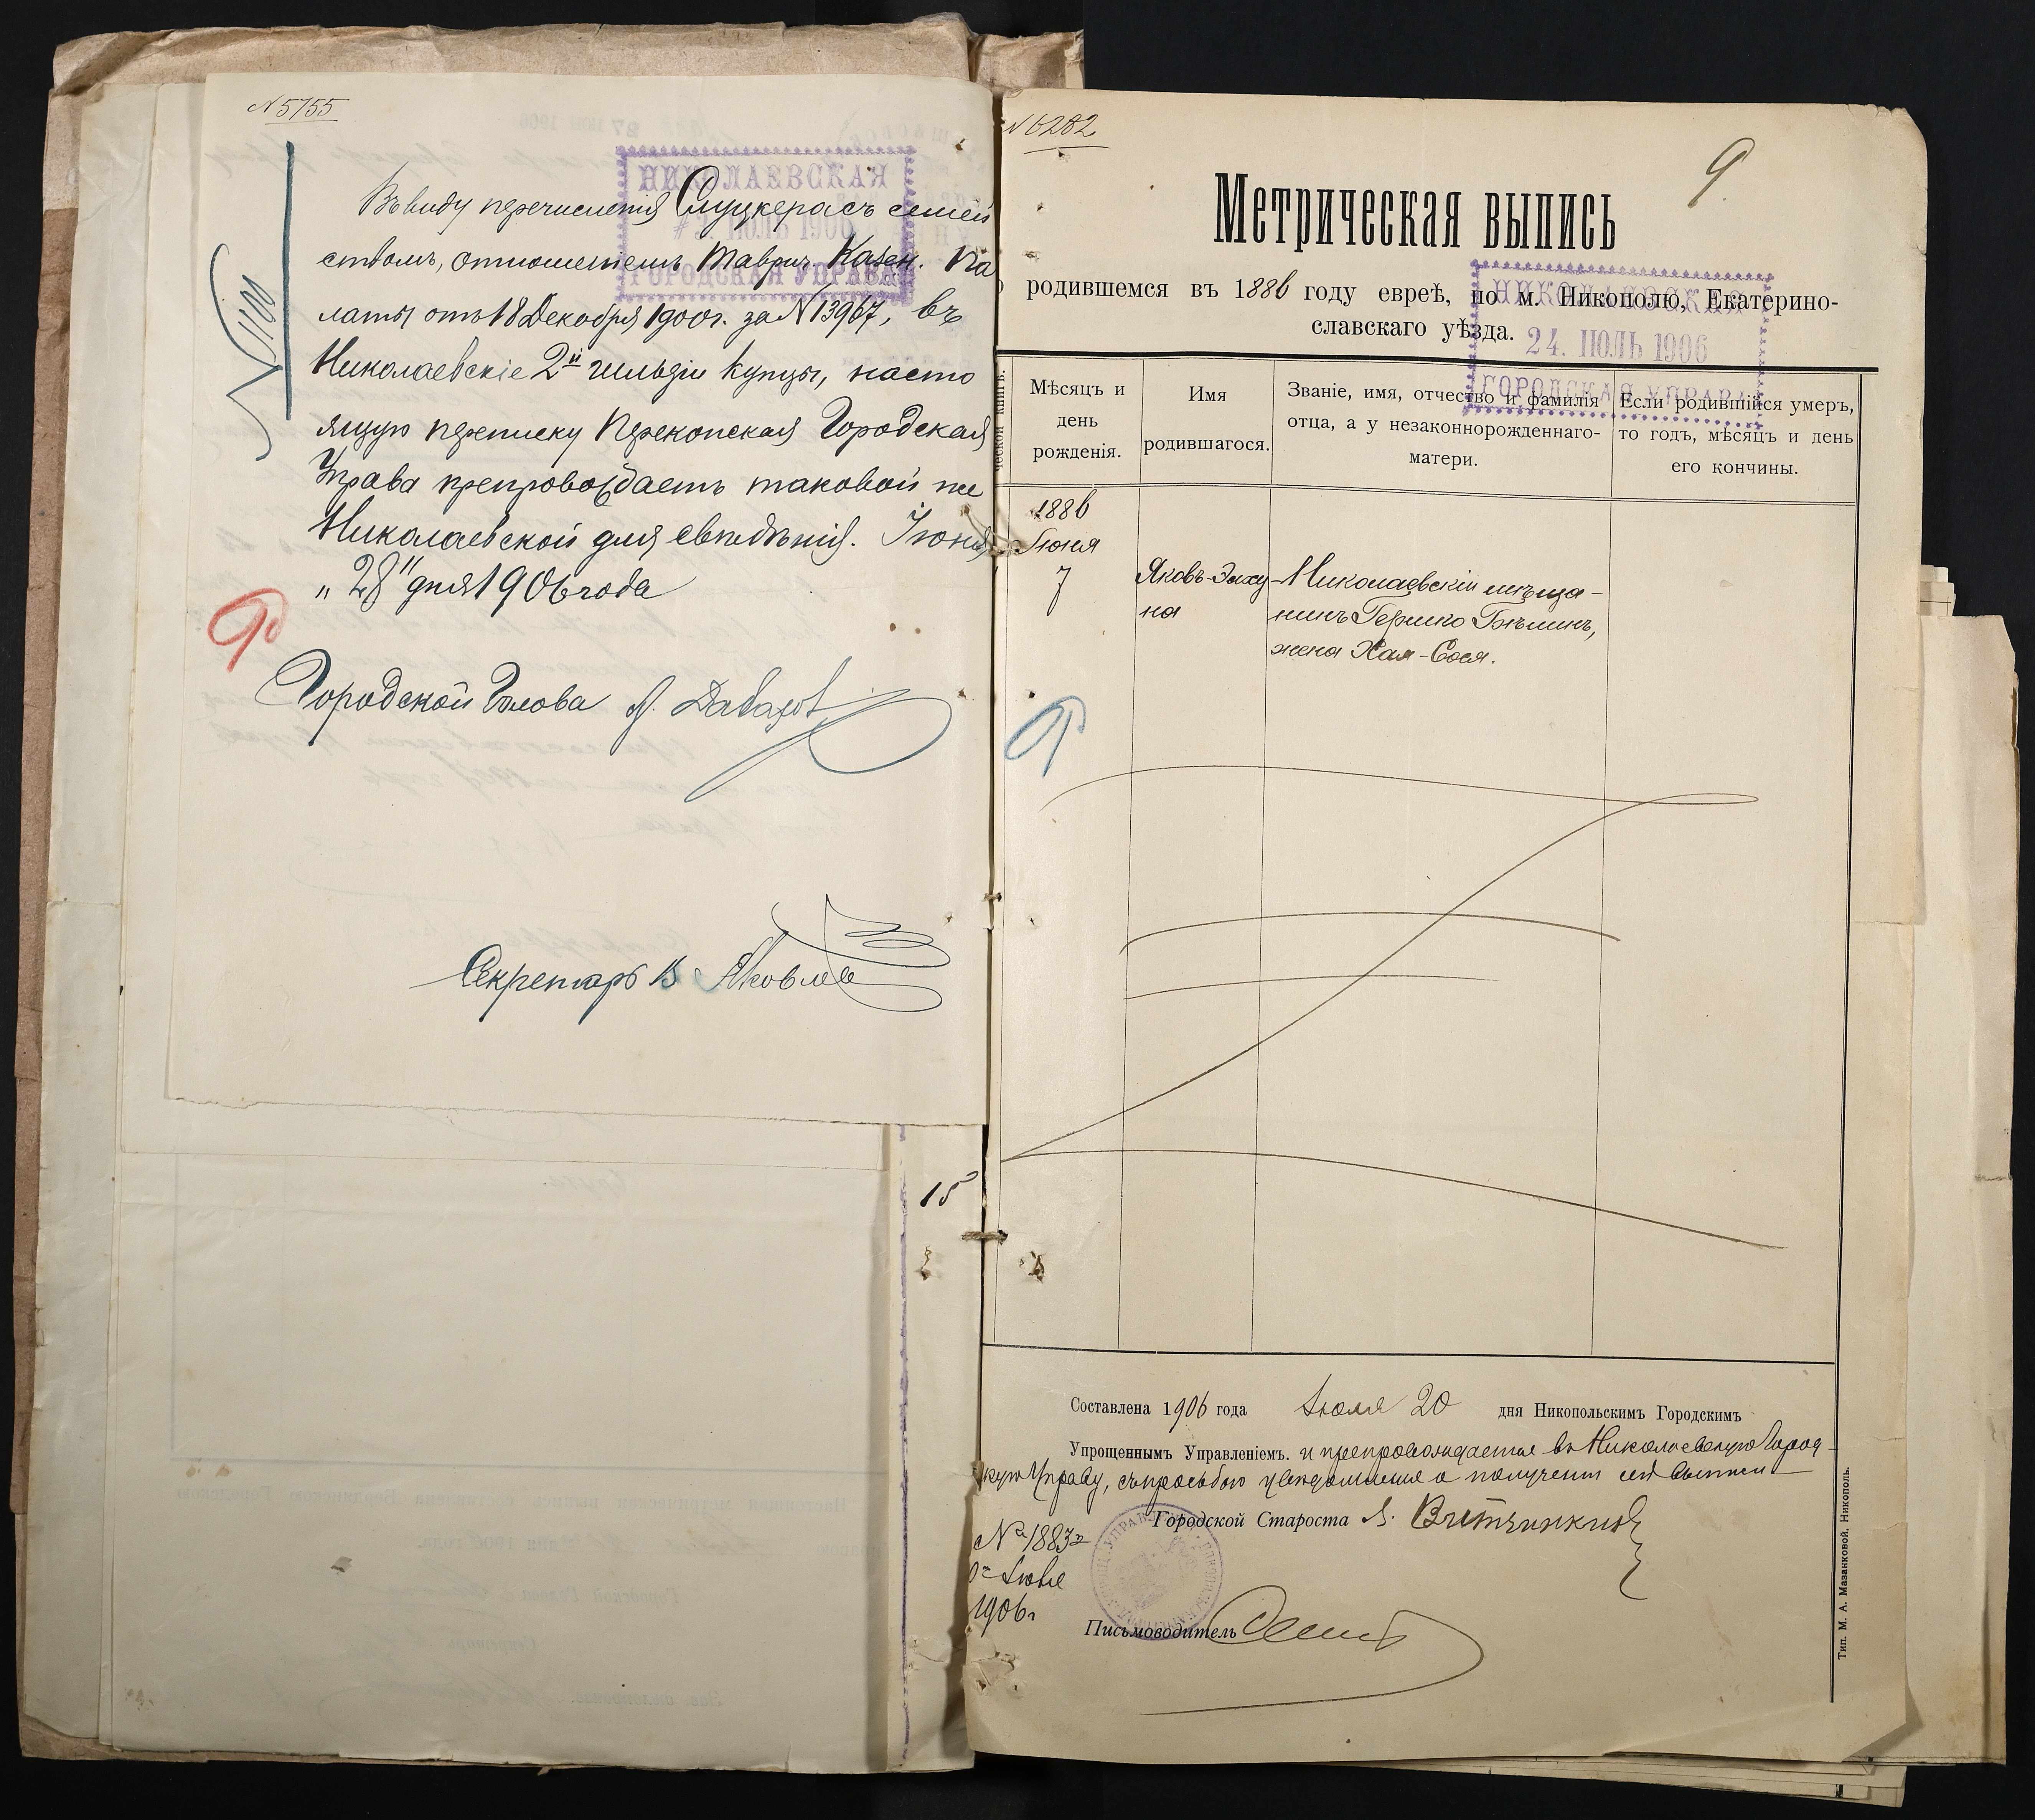 N 5755
НИКОЛАЕВСКАЯ
ІЮЛЬ 1906
ГОРОДСКАЯ УПРАВА
Въ виду перечисленія Слуцкера съ семей
ствомъ, отношеніемъ Таврич. Казен. Па
латы отъ 18 Декабря 1900г. за N 13967, въ
Николаевскіе 2й гильдіи купцы, насто
ящую переписку Перекопская Городская
Управа препровождаетъ таковой же
Николаевской для свѣдѣнія. Іюня
„28" дня 1906 года
Городской Голова
Секретарь В Яковлев
15
N 6282
9
Метрическая выпись
о родившемся въ 1886 году евреѣ, по м. Никополю, Екатерино-
славскаго уѣзда.
НИКОЛАЕВСКАЯ
24. ІЮЛЬ 1906
ГОРОДСКАЯ УПРАВА
Мѣсяцъ и
день
рожденія.
Имя
родившагося.
Званіе, имя, отчество и фамилія
отца, а у незаконнорожденнаго-
матери.
Если родившійся умеръ,
то годъ, мѣсяцъ и день
его кончины.
1886
Іюня
7
Яковъ-Элху
на
Николаевскій мѣща-
нинъ Гершко Бѣлинъ,
жена Хая-Сося.
Составлена 1906 года Іюля 20 дня Никопольскимъ Городскимъ
Упрощеннымъ Управленіемъ. и препровождается въ Николаевскую Город-
скую Управу, съ просьбою увѣдомленія о полученіи сей выписи
Городской Староста
№ 1883
Іюля
1906г
Письмоводитель
Тип. М. А. Мазанковой, Никополь.